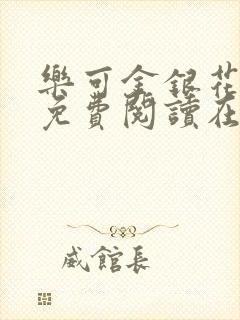 樂可金銀花
免費閱讀在
威館長